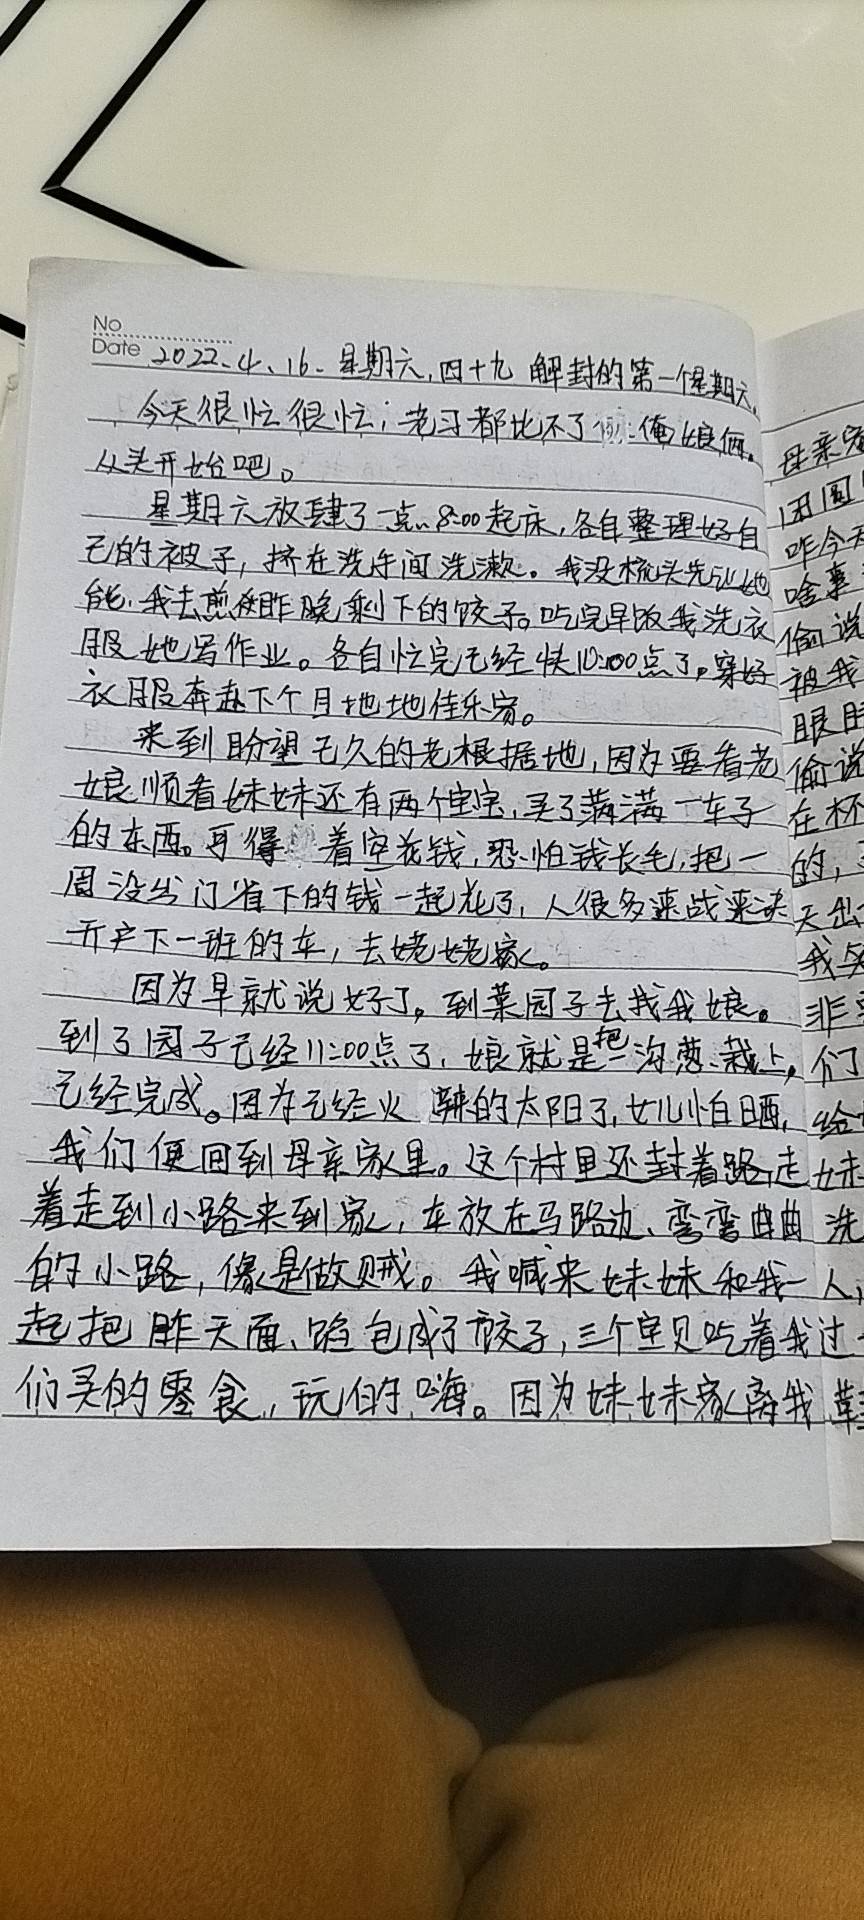 No
Date 2022.4.16.星期六.四十九 解封的第一个星期六.
今天很忙很忙;老习都比不了俺娘俩。
从头开始吧。
星期六放肆了一点..8:00起床,各自整理好自
己的被子,挤在洗手间洗漱。我没梳头先让她
能.我去煎昨晚剩下的饺子。吃完早饭我洗衣
服她写作业。各自忙完已经快10:00点了。穿好
衣服奔赴下个目地地佳乐家。
来到盼望已久的老根据地,因为要看老
娘顺看妹妹还有两个宝宝,买了满满一车子
的东西。可得着空花钱,恐怕钱长毛,把一
周没出门省下的钱一起花了,人很多速战速决
开户下一班的车,去姥姥家。
因为早就说好了。到菜园子去找我娘。
到了园子已经11:00点了.娘就是把一沟葱.栽上,
已经完成。因为已经火辣的太阳了,女儿怕晒,
我们便回到母亲家里。这个村里还封着路,走
着走到小路来到家,车放在马路边、弯弯曲曲
的小路,像是做贼。我喊来妹妹和我一
起把昨天面、馅包成了饺子,三个宝贝吃着我
们买的零食,玩的嗨。因为妹妹家离我
母亲家
团圆
咋今天
啥事
偷说
被我
眼
偷说
在杯
的,
天出
我
非
们
给
妹
洗
人,
过